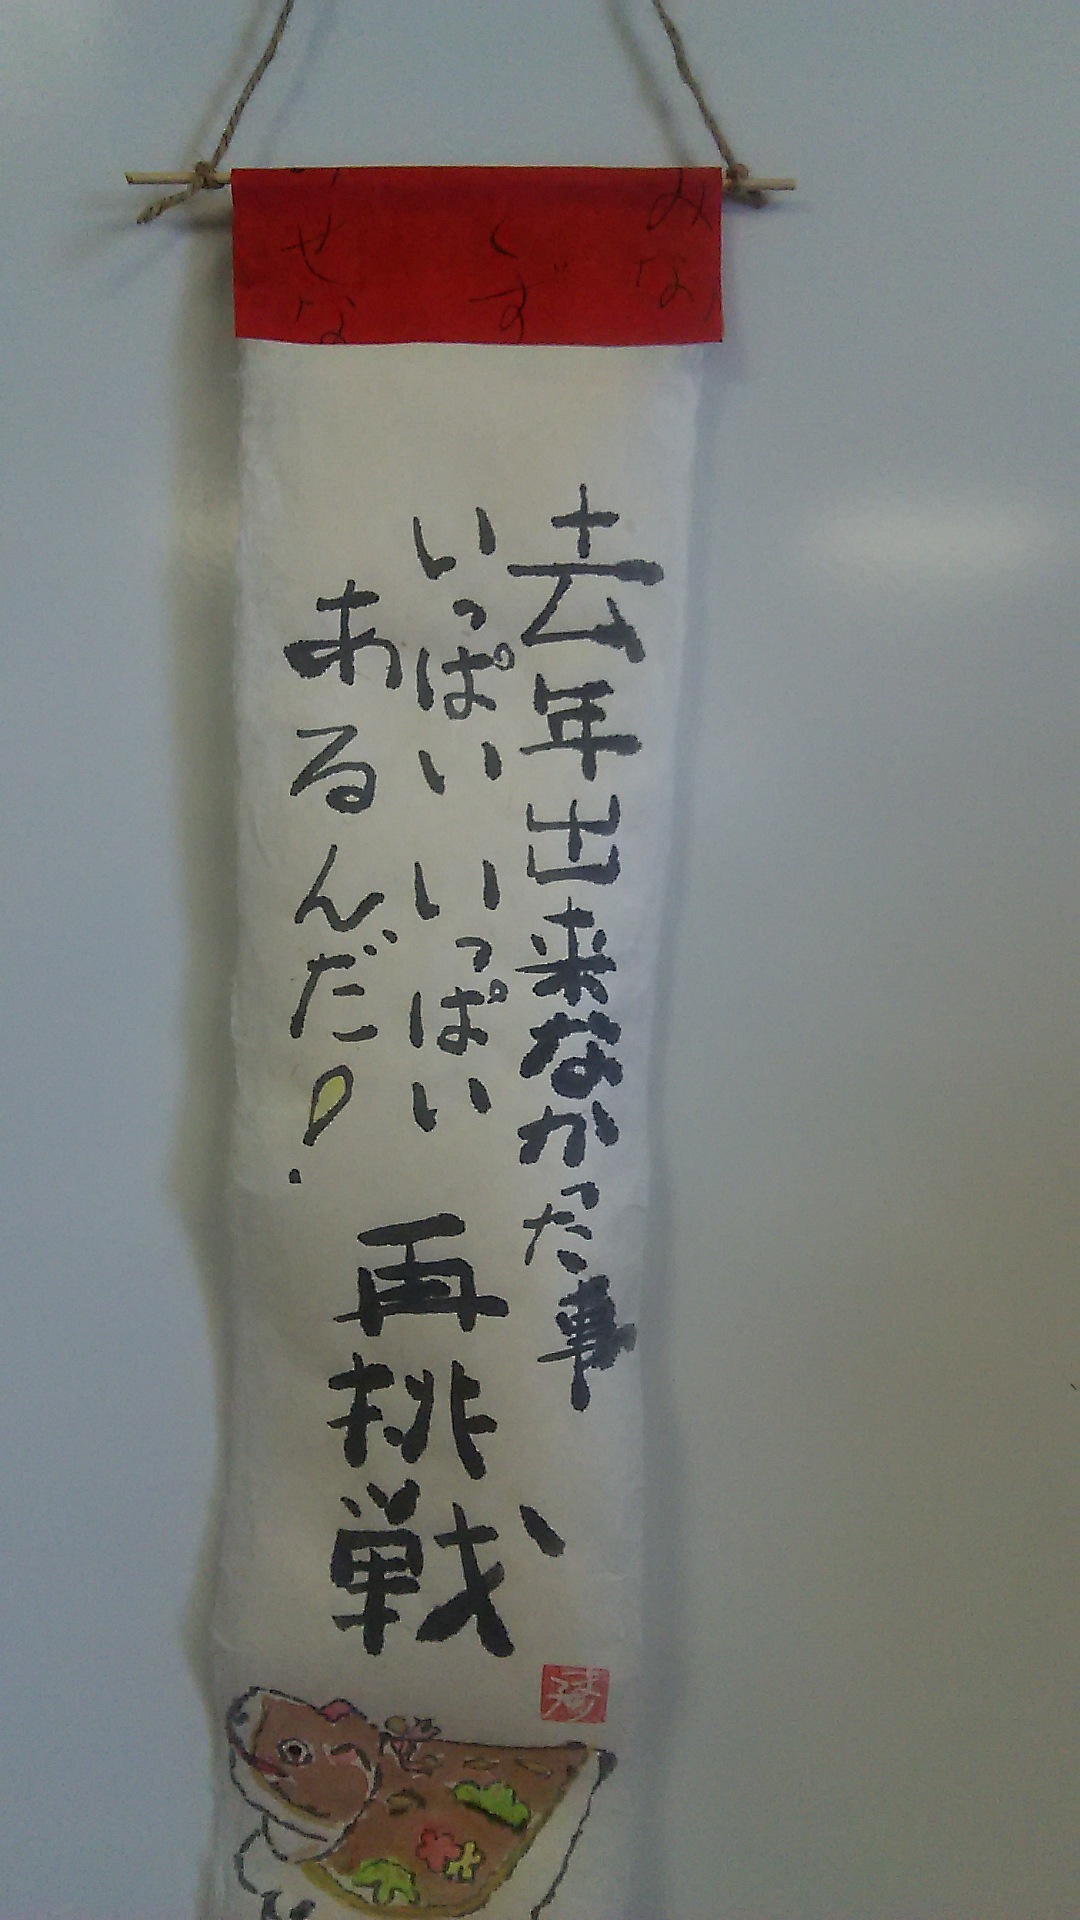 去年出来なかった事
いっぱい いっぱい
あるんだ!
再挑戦
みな
くず
せな